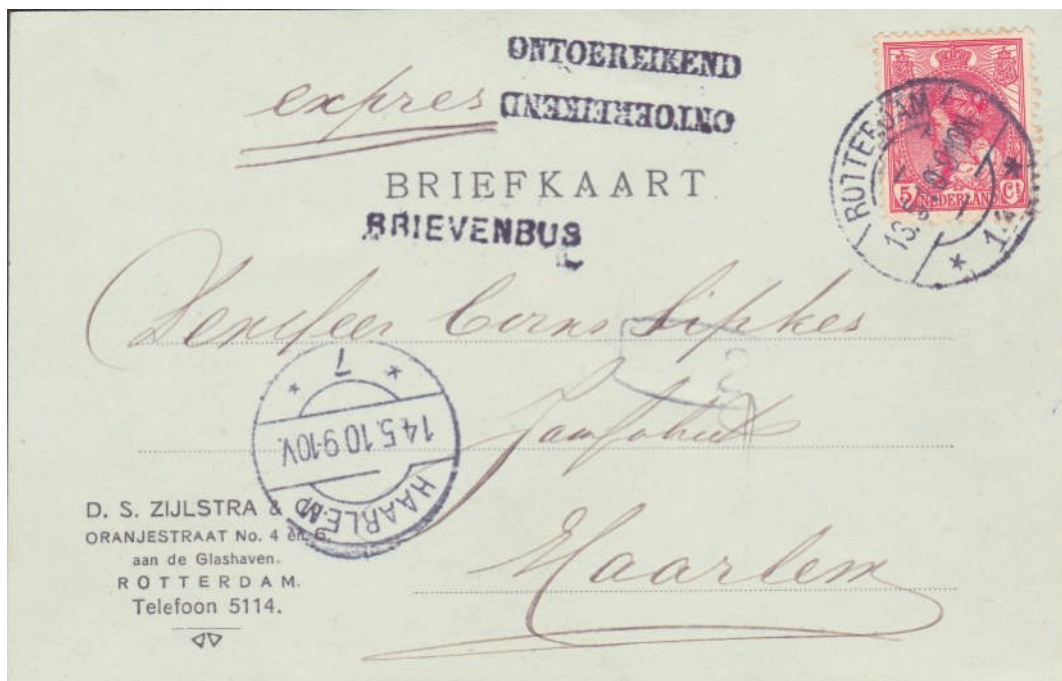 ONTOEREIKEND
expres
ONTOEREIKEND
BRIEFKAART
BRIEVENBUS
5 Ct
NEDERLAND
ROTTERDAM
den heer Corns Sipkes
7
14.5.10 9-10V.
HAARLEM
Haarlem
D. S. ZIJLSTRA &
ORANJESTRAAT No. 4 en 6
aan de Glashaven.
ROTTERDAM.
Telefoon 5114.